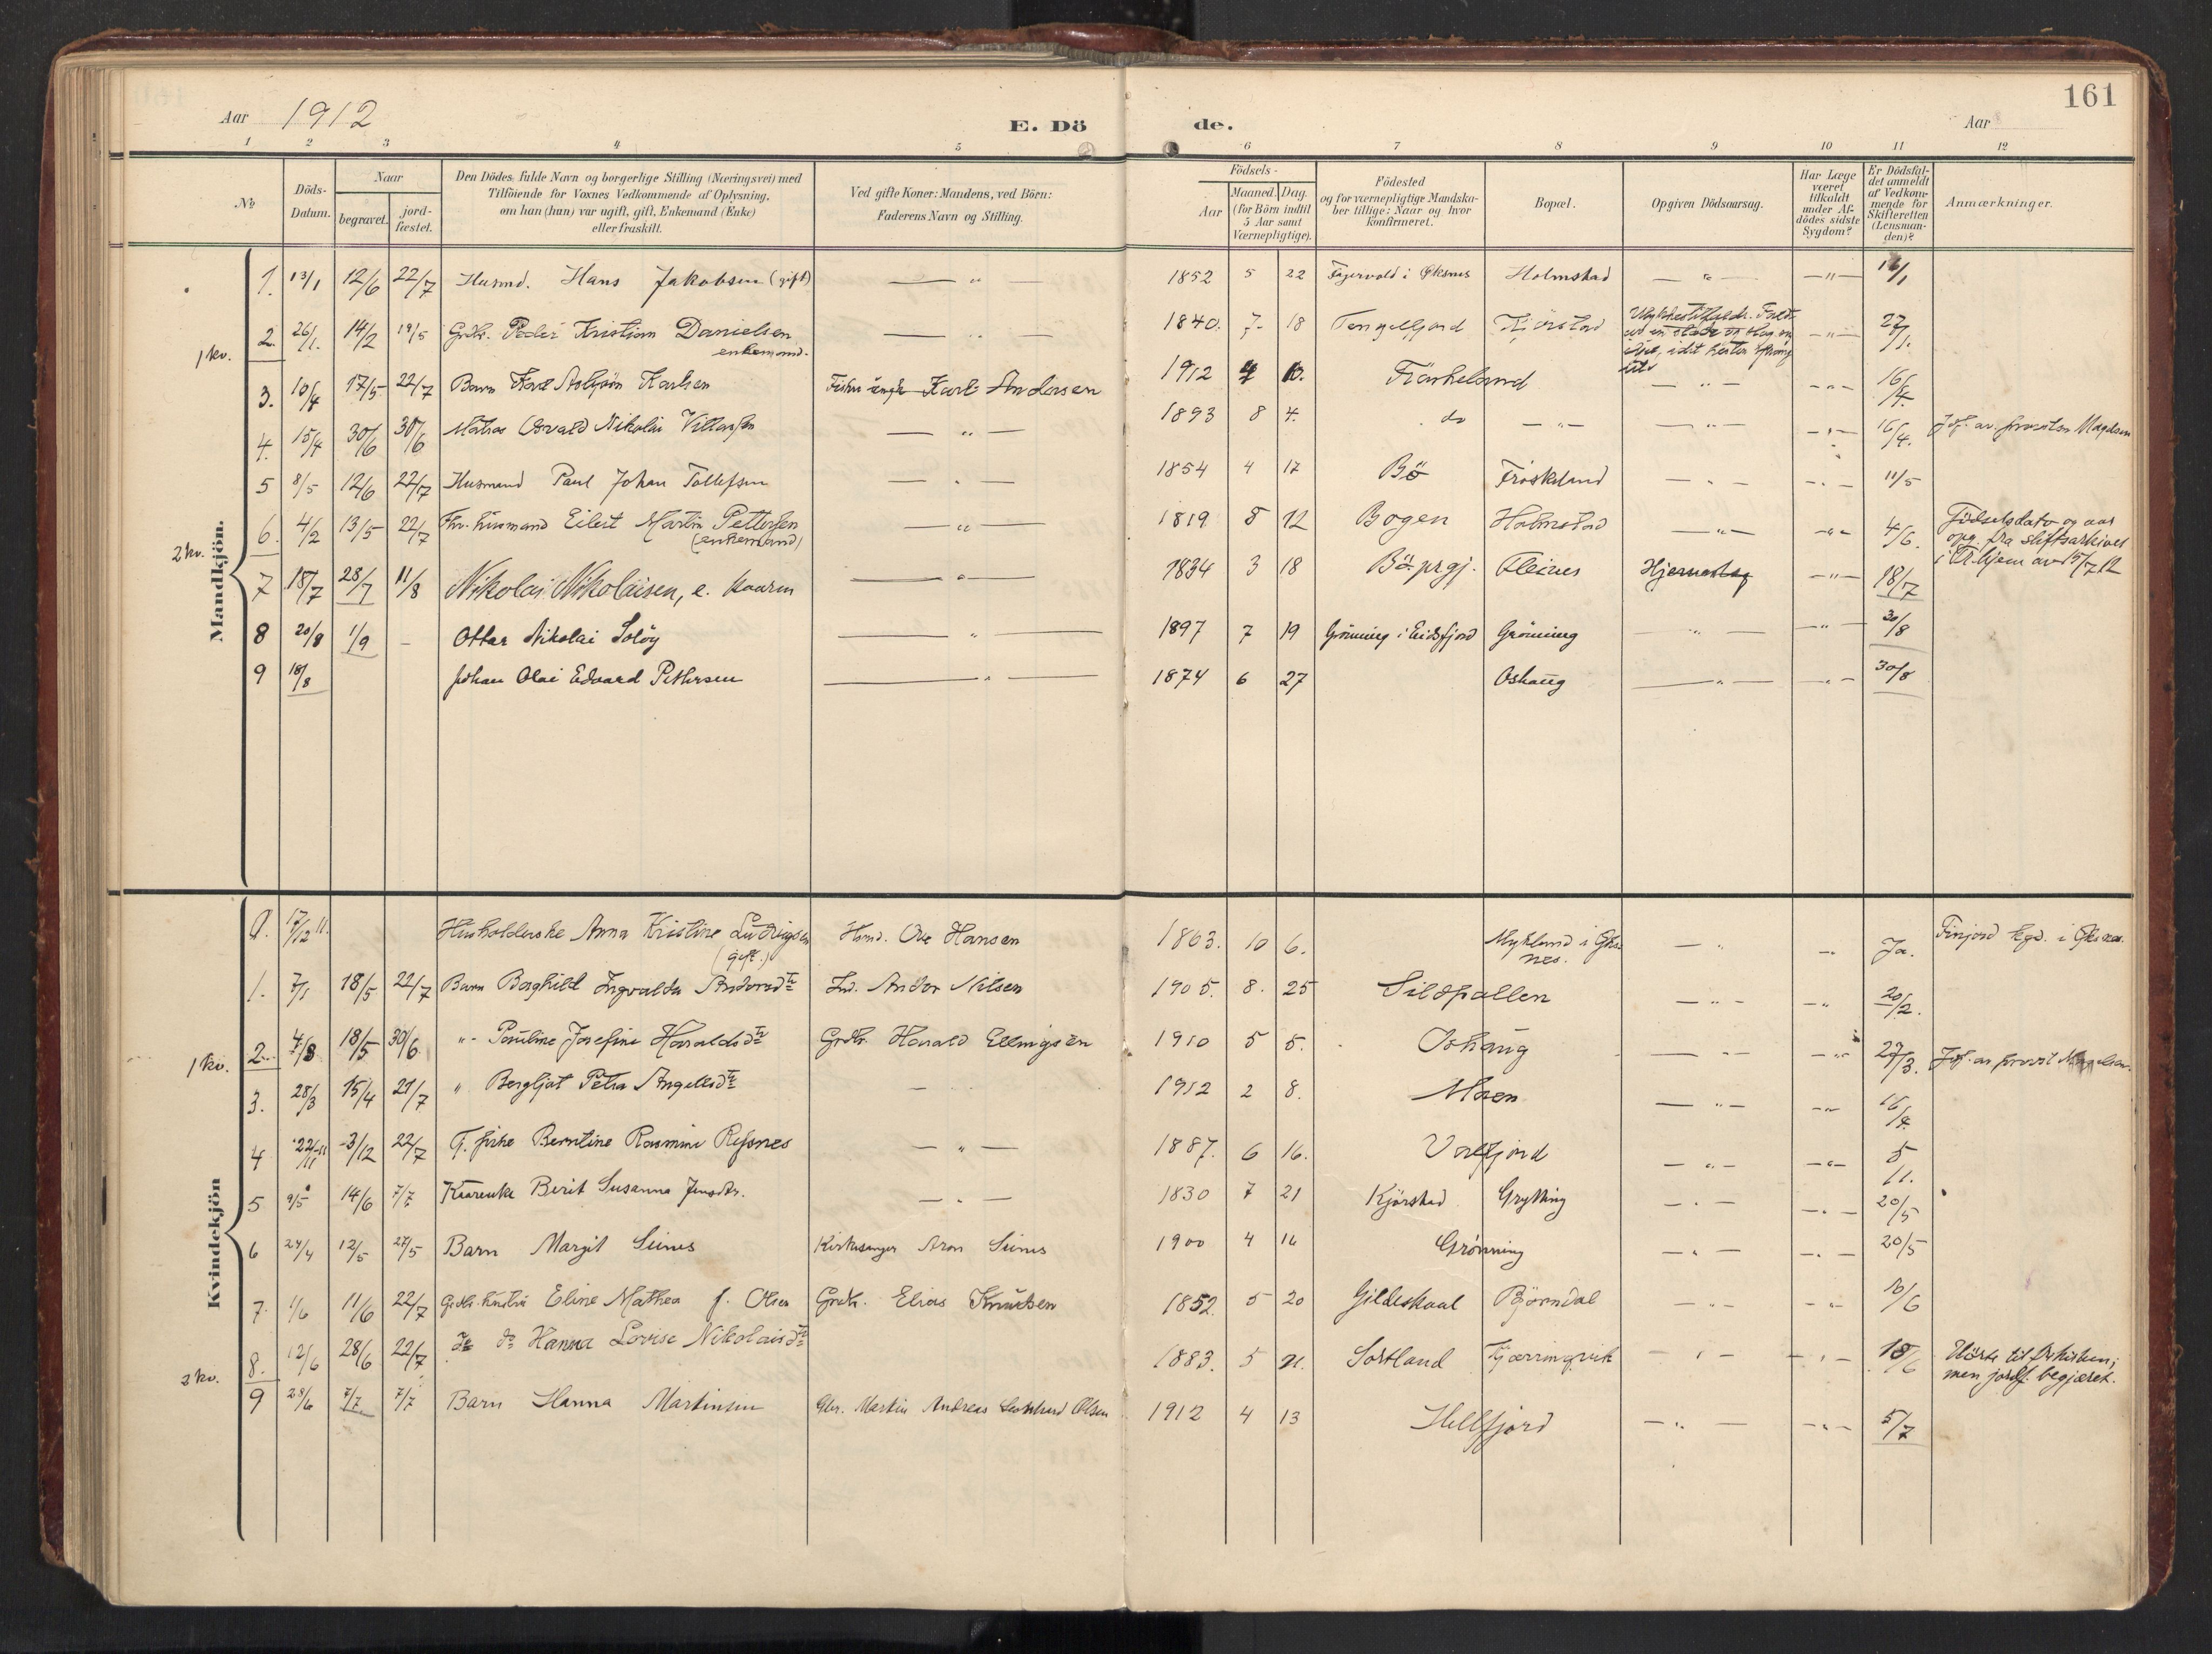 161
Aar 1912
E. Dö
de.
Aar
1 2 3 4 5 6 7 8 9 10 11 12
No
Döds-
Datum.
Naar
begravet.
jord-
fæstet.
Den Dödes fulde Navn og borgerlige Stilling (Næringsvei) med
Tilföiende for Voxnes Vedkommende af Oplysning,
om han (hun) var ugift, gift, Enkemand (Enke)
eller fraskilt.
Ved gifte Koner: Mandens, ved Börn:
Faderens Navn og Stilling.
Födsels-
Aar
Maaned. Dag.
(for Börn indtil
5 Aar samt
Værnepligtige).
Födested
og for værnepligtige Mandska-
ber tillige: Naar og hvor
konfirmeret.
Bopæl.
Opgiven Dödsaarsag.
Har Læge
været
tilkaldt
under Af-
dödes sidste
Sygdom?
Er Dödsfal-
det anmeldt
af Vedkom-
mende for
Skifteretten
(Lensman-
den)?
Anmærkninger.
Mandkjön.
1. 13/1 12/6 22/7 Husmd. Hans Jakobsen (gift) — " — 1852 5 22 Fagervold i Øksnes Holmstad — " — — " —
1 kv. 2. 26/1. 14/2 19/5 Grdbr. Peder Kristian Danielsen — " — 1840. 7 18 Tengelfjord Kjörstad — " — 27/1.
enkemand.
3. 10/4 17/5 22/7 Barn Karl Adolfsön Karlsen Fisker ungk Karl Andersen 1912 4 10. Fröskeland — " — — " — 16/4.
4. 15/4 30/6 30/6 Matros Osvald Nikolai — " — 1893 8 4. do — " — — " — — " — 16/4. Jdf. av provsten
5 8/5 12/6 22/7 Husmand Paul Johan Tollefsen — " — 1854 4 17 Bö Fröskeland — " — — " — 11/5
2 kv. 6. 4/2 13/5 22/7 Fhv. husmand Eilert Martin Pettersen — " — 1819 8 12 Bogen Holmstad — " — — " — 4/6. Födselsdato og aar
(enkemand)
opg. fra stiftsarkivet
i Tr.hjem av 15/7 12
7 18/7 28/7 11/8 Nikolai Nikolaisen, e. kaarm — " — 1834 3 18 Bö prgj. Fleines Hjerneslag — " — 18/7
8 20/8 1/9 - Ottar Nikolai Solöy — " — 1897 7 19 Grönning i Eidsfjord Grönning — " — — " — 30/8
9 18/8 Johan Olai Edvard Pettersen — " — 1874 6 27 Oshaug — " — — " — 30/8
Kvindekjön
0. 17/12 11. Husholderske Anna Kristine Ludvigsen Hsmd. Ove Hansen 1863. 10 6. Myhland i Øks- — " — Ja. Finjord kgd. i Øksnes.
(gift.)
nes.
1. 7/1 18/5 22/7 Barn Borghild Ingvalda Andorsdtr Ind. Andor Nilsen 1905. 8. 25 Sildpollen — " — — " 20/2.
1 kv. 2. 4/3 18/5 30/6 " Pauline Josefine Haraldsdtr Grdbr. Harald Ellingsen 1910 5 5. Oshaug — " — — " — 27/3. Jdf. av provst
3. 28/3 15/4 21/7 " Bergljot Petra Angellsdtr — 1912 2 8. Moen — " — — " — 16/4.
4 22/11 11 3/12 22/7 T. pike Berntine Rasmine Refsnes — " — 1887. 6 16. Valfjord — " — — " — 5/11.
5 9/5 14/6 7/7 Kaarenke Berit Susanna Jensdtr. — " — 1830 7 21 Kjörstad Grytting — " — — " — 20/5
6 24/4 12/5 27/5 Barn Margit Seines Kirkesanger Aron Seines 1900 4 16 Grönning — " — — " — 20/5
7. 1/6 11/6 22/7 Grdbr. hustru Eline Mathea f. Olsen Grdbr. Elias Knudsen 1852. 5 20 Gildeskaal Björndal — " — — " — 10/6
2 kv. 8. 12/6 28/6 22/7 do do Hanna Lovise Nikolaisdtr 1883. 5 21. Sortland Kjærringvik — " — — " — 18/6 Hörte til frikirken;
men jordf. begjæret.
9 28/6 7/7 7/7 Barn Hanna Martinsen Gbr. Martin Andreas Leonhard Olsen 1912 4 13 Hellfjord — " — — " — 5/7